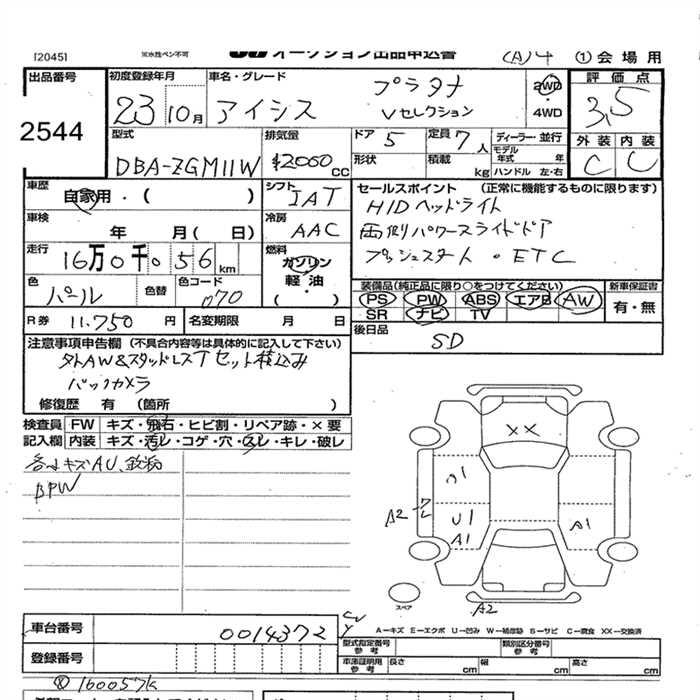 [2045] ※水性ペン不可 オークション出品申込書 (A)4 ① 会場用
出品番号 初度登録年月 車名・グレード プラタナ 2WD 評価点
2544 23 10月 アイシス Vセレクション ・4WD 3,5
型式 排気量 ドア 5 定員 7人 ディーラー・並行 外装 内装
DBA-ZGM11W 2000 CC 形状 積載 kg モデル年式 年 ハンドル 左・右 C C
車歴 自家用・( ) シフト IAT セールスポイント (正常に機能するものに限ります)
HIDヘッドライト
車検 年 月( 日) 冷房 AAC 両側パワースライドドア
走行 16万0千056km 燃料 ガソリン 軽油・( ) プッシュスタート・ETC
色 パール 色替 色コード 070 装備品(純正品に限り○をつけてください) 新車保証書
PS PW ABS エアB AW 有・無
SR ナビ TV
R券 11.750 円 名変期限 月 日 後日品 SD
注意事項申告欄 (不具合内容等は具体的に記入して下さい)
外AW&スタッドレスTセット積込み
バックカメラ
修復歴 有 (箇所 )
検査員 FW キズ・飛石・ヒビ割・リペア跡・×要
記入欄 内装 キズ・汚レ・コゲ・穴・スレ・キレ・破レ
各キズAU、
BPW
XX
U1
A2 ワレ U1 A1
A1
スペア A2
A−キズ E−エクボ U−凹み W−補修跡 S−サビ C−腐食 XX−交換済
車台番号 0014372
型式指定番号 参考 類別区分番号 参考
登録番号 車庫証明用 参考 長さ cm 幅 cm 高さ cm
160057k